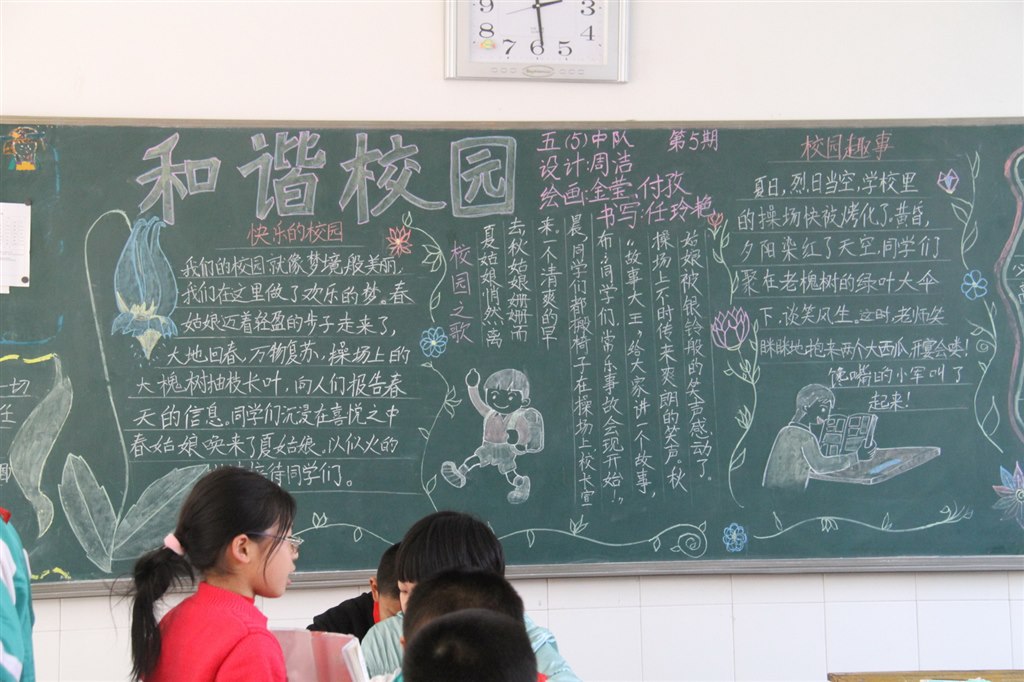 9 3
8 4
7 6 5
一切
任
和谐校园
五(5)中队 第5期
设计:周洁
绘画:金莹、付孜
书写:任玲艳
快乐的校园
我们的校园就像梦境般美丽,
我们在这里做了欢乐的梦。春
姑娘迈着轻盈的步子走来了,
大地回春,万物复苏,操场上的
大槐树抽枝长叶,向人们报告春
天的信息。同学们沉浸在喜悦之中
春姑娘唤来了夏姑娘,以似火的
接待同学们。
校园之歌
夏姑娘悄然离
去,秋姑娘姗姗而
来,一个清爽的早
晨,同学们都搬椅子在操场上,校长宣
布:同学们,常乐事故会现开始!”
“故事大王”,给大家讲一个故事,
操场上不时传来爽朗的笑声,秋
姑娘被银铃般的笑声感动了。
校园趣事
夏日,烈日当空,学校里
的操场快被烤化了。黄昏,
夕阳染红了天空,同学们
聚在老槐树的绿叶大伞
下,谈笑风生。这时,老师笑
眯眯地抱来两个大西瓜,开宴会喽!
馋嘴的小军叫了
起来!